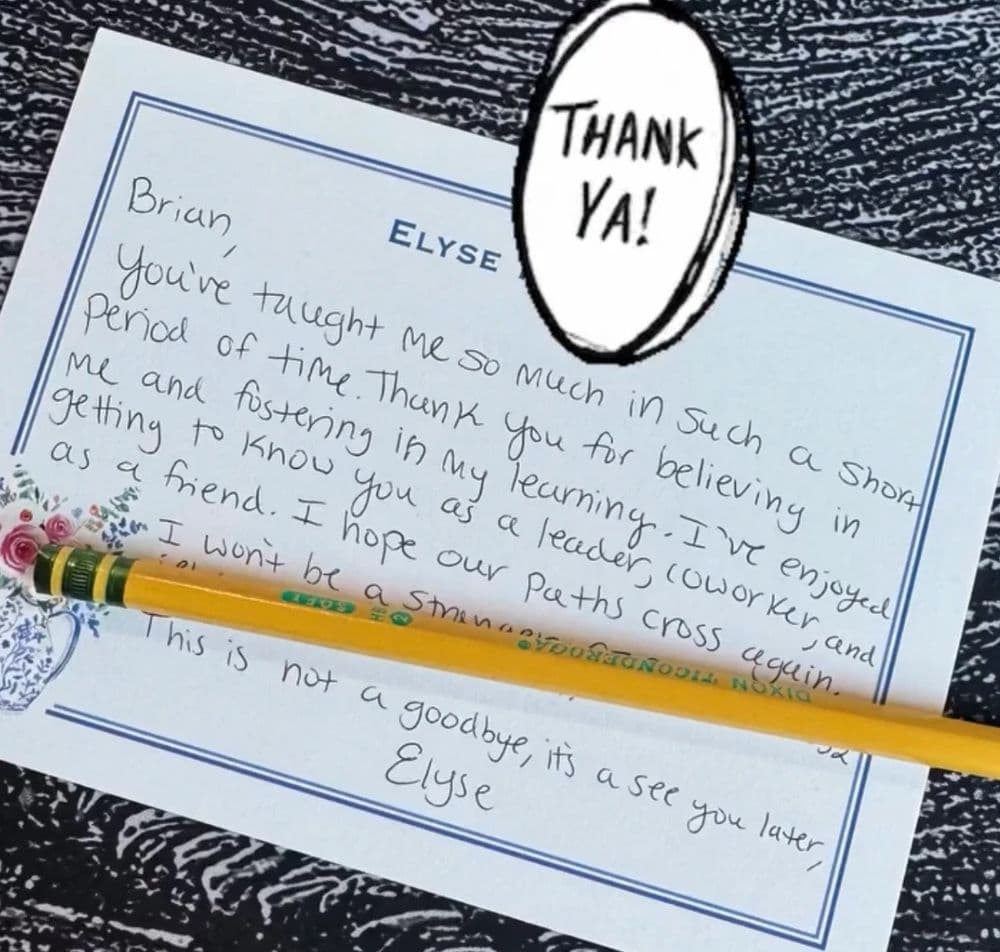 THANK
YA!
ELYSE
Brian,
You've taught me so much in such a short
period of time. Thank you for believing in
me and fostering in my learning. I've enjoyed
getting to know you as a leader, coworker, and
as a friend. I hope our paths cross again.
I won't be a
This is not a goodbye, it's a see you later,
Elyse
DIXON TICONDEROGA
2
SOFT